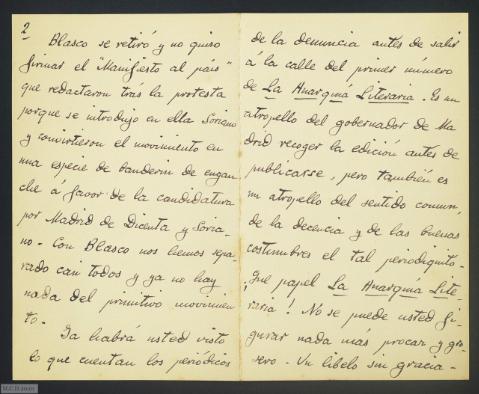 2
Blasco se retiró y no quiso
firmar el "Manifiesto al país"
que redactaron tras la protesta
porque se introdujo en ella Soriano
y convirtieron el movimiento en
una especie de banderín de engan
che á favor de la candidatura
por Madrid de Dicenta y Soria-
no - Con Blasco nos hemos sepa-
rado casi todos y ya no hay
nada del primitivo movimien
to.
Ya habrá usted visto
lo que cuentan los periódicos
de la denuncia antes de salir
á la calle del primer número
de La Anarquía Literaria. Es un
atropello del gobernador de Ma
drid recoger la edición antes de
publicarse, pero también es
un atropello del sentido común,
de la decencia y de las buenas
costumbres el tal periodiquito.
¡Que papel La Anarquía Lite-
raria! No se puede usted fi-
gurar nada más procaz y gro
sero - Un libelo sin gracia -